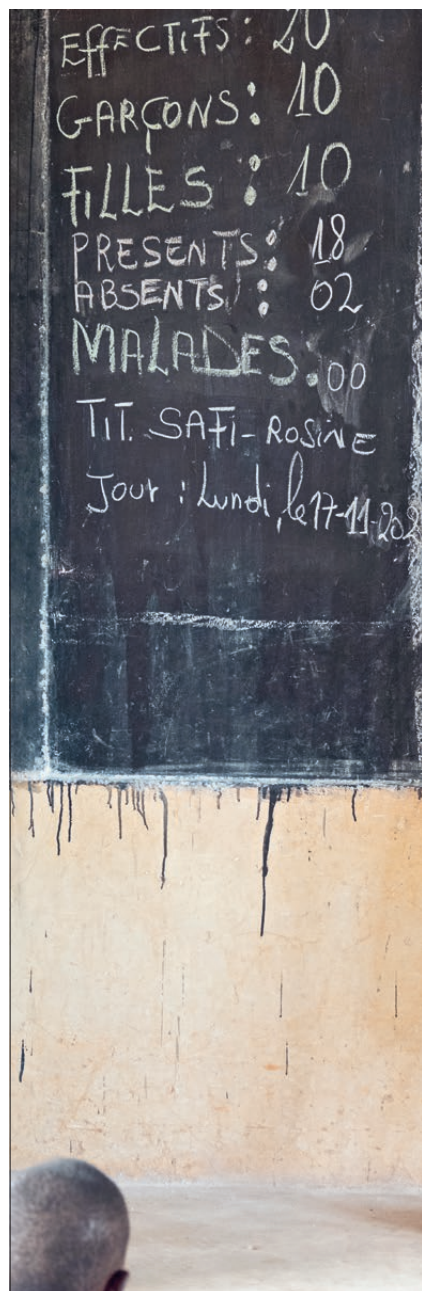 EFFECTIFS: 20
GARÇONS: 10
FILLES : 10
PRESENTS: 18
ABSENTS : 02
MALADES: 00
TIT. SAFI-ROSINE
Jour : Lundi, le 17-11-202